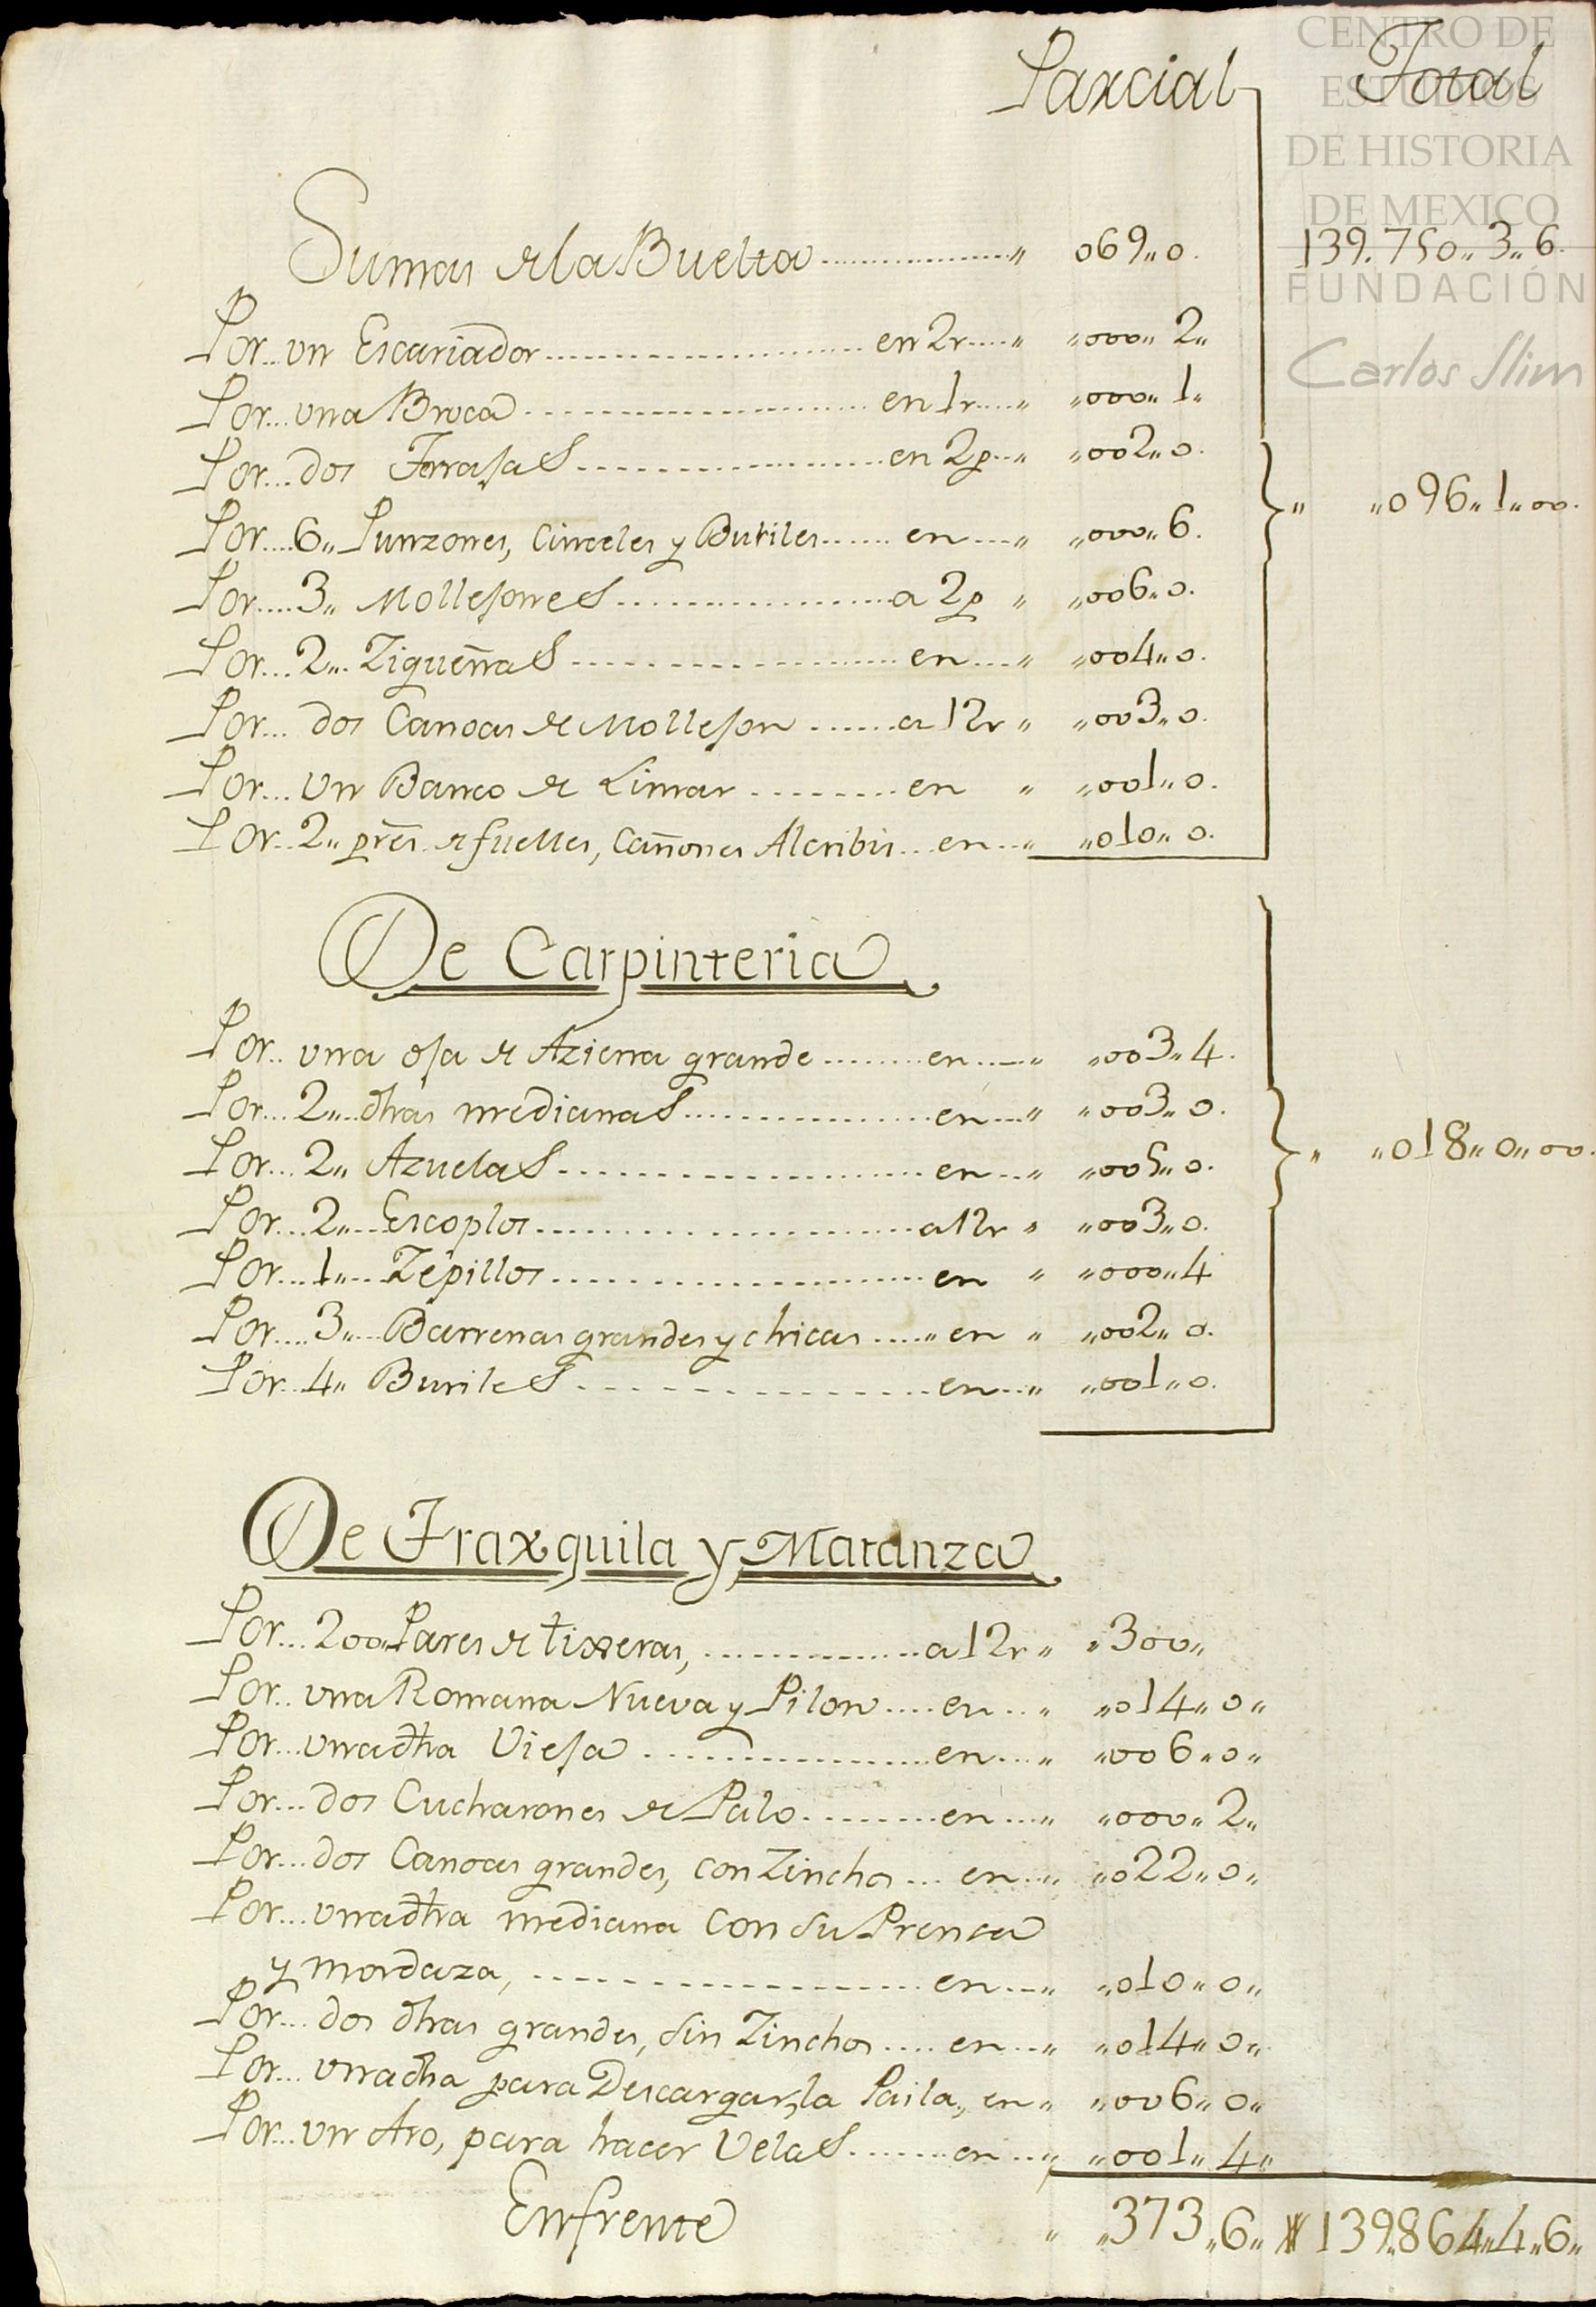 Parcial Total
CENTRO DE
ESTUDIOS
DE HISTORIA
DE MEXICO
FUNDACIÓN
Carlos Slim
Sumas de la Buelta ........ " 069" 0. 139.750" 3" 6.
Por... un Escariador ........ en 2r.... " "000" 2"
Por... una Broca ........ en 1r.... " "000" 1"
Por... dos ........ en 2p... " "002" 0.
Por.... 6" Punzones, Cinceles y Buriles ...... en .... " "000" 6. " "096" 1" 00.
Por.... 3" Mollejones ........ a 2p " "006" 0.
Por... 2" Zigueñas ........ en .... " "004" 0.
Por... dos Canoas de Mollejon ...... a 12r " "003" 0.
Por... un Banco de Limar ........ en " "001" 0.
Por.. 2" pres. de fuelles, Cañones Alcribis... en ... " "010" 0.
De Carpinteria
Por.. una oja de Azierra grande ........ en ..... " "003" 4.
Por... 2" dhas medianas ........ en .... " "003" 0.
Por... 2" Azuelas ........ en ... " "005" 0. " "018" 0" 00.
Por... 2" Escoplos ........ a 12r " "003" 0.
Por... 1" Zepillos ........ en " "000" 4
Por.... 3" Barrenas grandes y chicas ..... en " "002" 0.
Por.. 4" Buriles ........ en ... " "001" 0.
De Traxquila y Matanza
Por... 200" Pares de tixeras, ........ a 12r " "300"
Por.. una Romana Nueva y Pilon .... en .. " "014" 0"
Por... una dha Vieja ........ en ... " "006" 0"
Por... dos Cucharones de Palo ........ en ... " "000" 2"
Por... dos Canoas grandes, con Zinchos ... en ... " "022" 0"
Por... una dha mediana con su Prensa
y mordaza, ........ en ... " "010" 0"
Por... dos dhas grandes, sin Zinchos .... en ... " "014" 0"
Por... una dha para Descargar la Paila, en " "006" 0"
Por... un Aro, para hacer Velas ........ en ... " "001" 4"
Enfrente " "373" 6" 139.864" 4" 6"